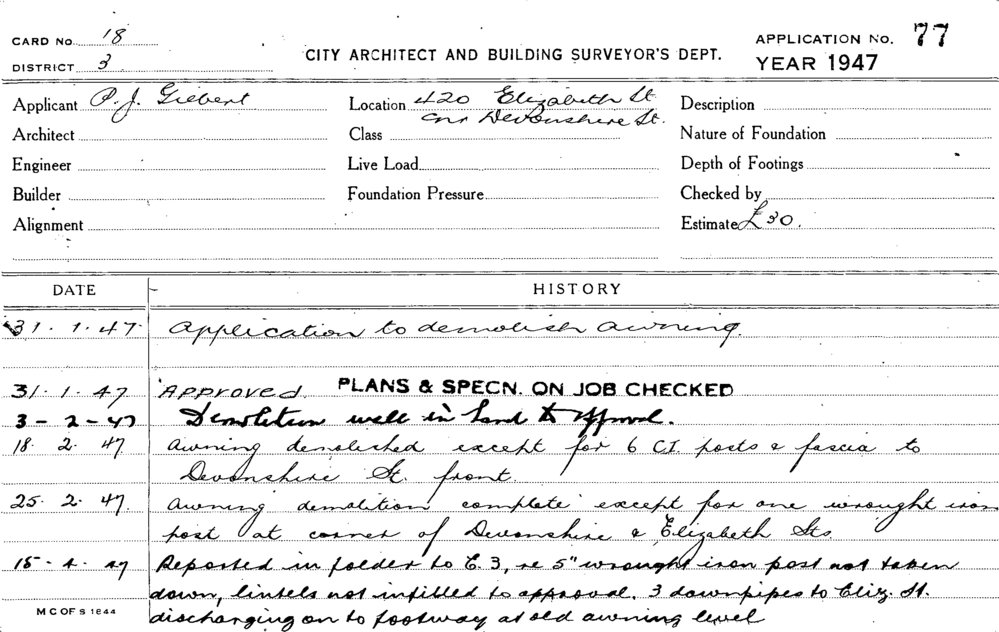 CARD No. 18
DISTRICT 3
CITY ARCHITECT AND BUILDING SURVEYOR'S DEPT.
APPLICATION No. 77
YEAR 1947
Applicant P. J. Giebert
Location 420 Elizabeth St
cnr Devonshire St.
Description
Architect
Class
Nature of Foundation
Engineer
Live Load
Depth of Footings
Builder
Foundation Pressure
Checked by
Alignment
Estimate £30.
DATE HISTORY
31. 1. 47. Application to demolish awning.
31. 1. 47 Approved. PLANS & SPECN. ON JOB CHECKED
3 - 2 - 47 Demolition well in hand to approval.
18. 2. 47 Awning demolished except for 6 C.I. posts & fascia to
Devonshire St. front.
25. 2. 47. Awning demolition complete except for one wrought iron
post at corner of Devonshire & Elizabeth Sts.
15 - 4 - 47 Reported in folder to C. 3, re 5" wrought iron post not taken
down, lintels not infilled to approval, 3 downpipes to Eliz. St.
discharging on to footway at old awning level
M C OF S 1844